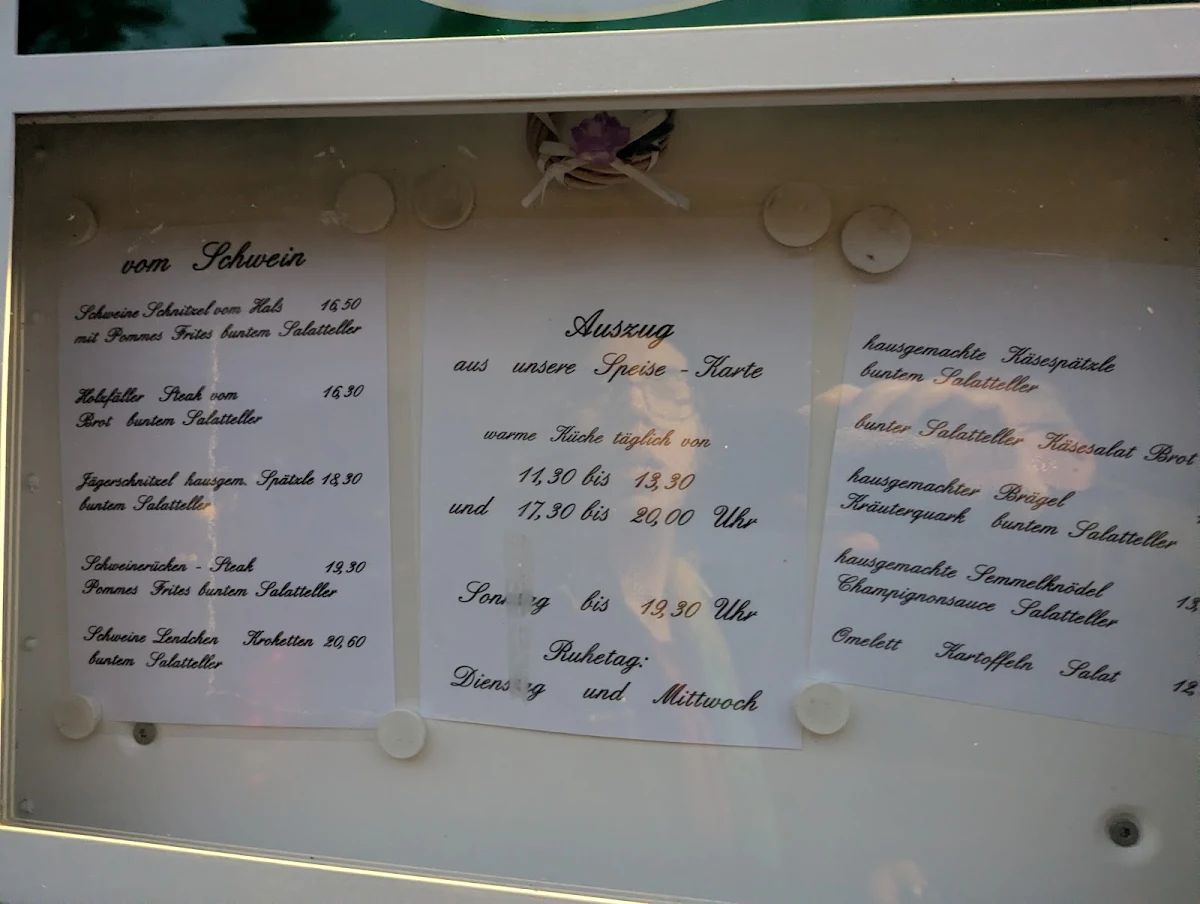 vom Schwein
Schweine Schnitzel vom Hals 16,50
mit Pommes Frites buntem Salatteller
Holzfäller Steak vom 16,30
Brot buntem Salatteller
Jägerschnitzel hausgem. Spätzle 18,30
buntem Salatteller
Schweinerücken - Steak 19,30
Pommes Frites buntem Salatteller
Schweine Lendchen Kroketten 20,60
buntem Salatteller
Auszug
aus unsere Speise - Karte
warme Küche täglich von
11,30 bis 13,30
und 17,30 bis 20,00 Uhr
Sonntag bis 19,30 Uhr
Ruhetag:
Dienstag und Mittwoch
hausgemachte Käsespätzle
buntem Salatteller
bunter Salatteller Käsesalat Brot
hausgemachter Brägel
Kräuterquark buntem Salatteller
hausgemachte Semmelknödel
Champignonsauce Salatteller 13,
Omelett Kartoffeln Salat 12,